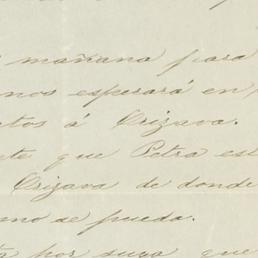 mañana para
nos esperará en
tos á Orizava.
te que Petra est
Orizava de donde
mo se pueda.
por suya que